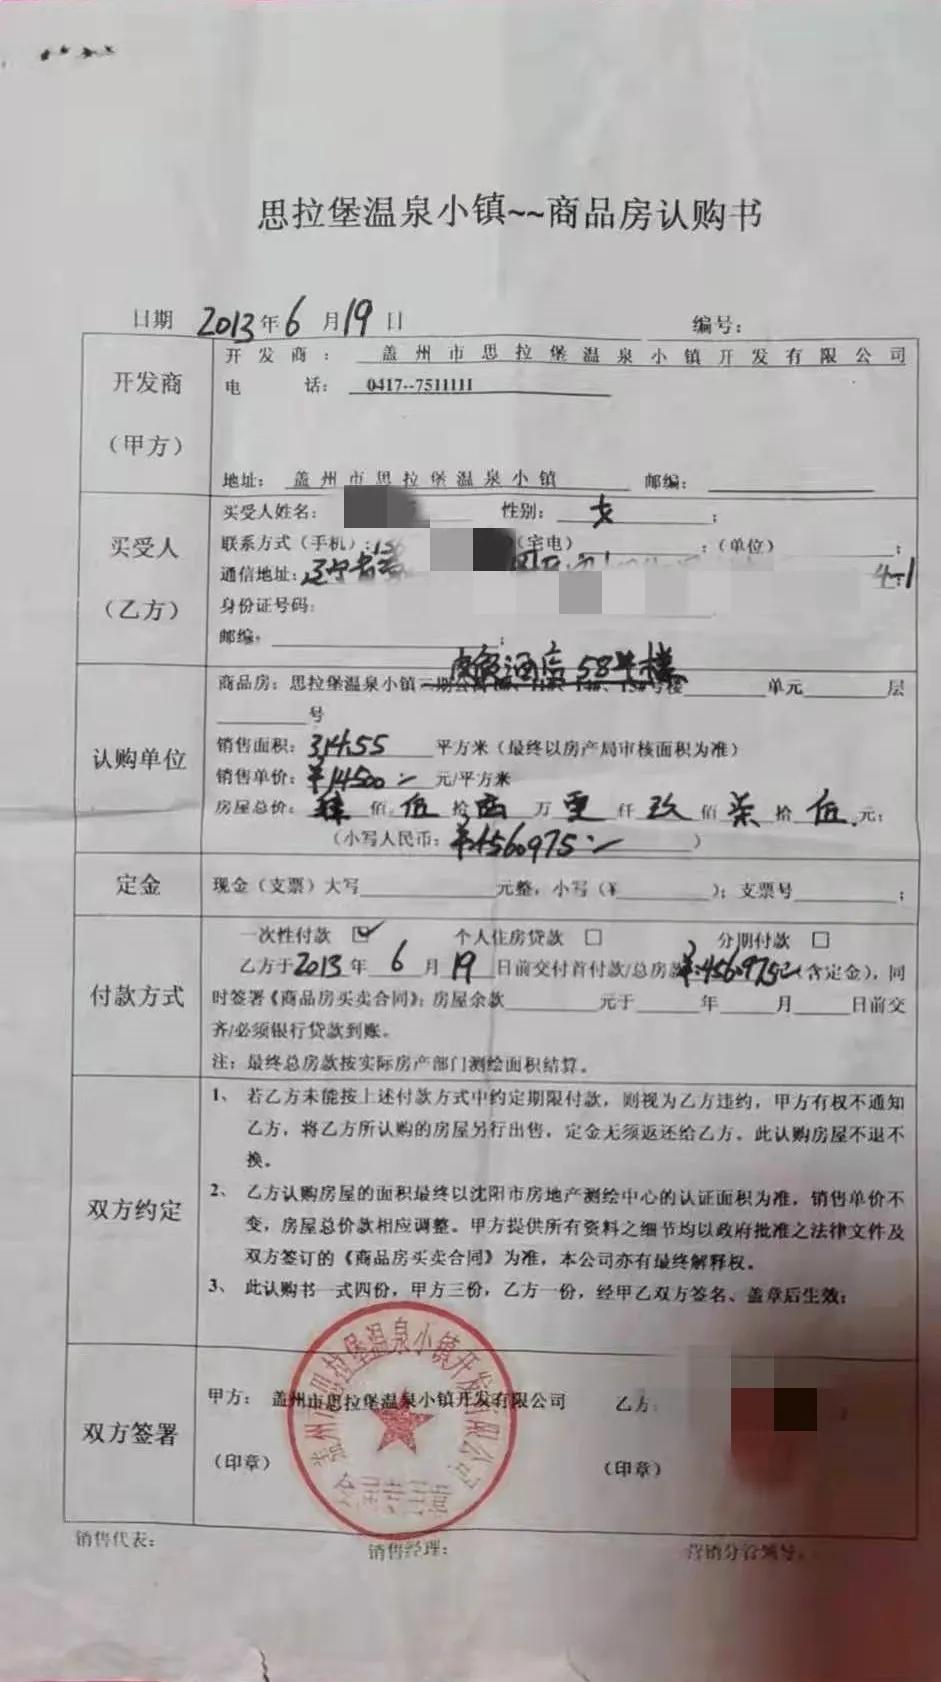 思拉堡温泉小镇~~商品房认购书
日期 2013年6月19日 编号：
开发商
（甲方）
开发商：盖州市思拉堡温泉小镇开发有限公司
电 话：0417--7511111
地址：盖州市思拉堡温泉小镇 邮编：
买受人
（乙方）
买受人姓名： 性别：女；
联系方式（手机）： （宅电） ；（单位） ；
通信地址：辽宁省 4-1
身份证号码：
邮编： ；
酒店58#楼
认购单位
商品房：思拉堡温泉小镇二期公寓 、15#号楼 单元 层
号
销售面积：314.55 平方米（最终以房产局审核面积为准）
销售单价：¥14500:- 元/平方米
房屋总价：肆佰伍拾 万 仟玖佰柒拾伍元；
（小写人民币：¥4560975:- ）
定金
现金（支票）大写 元整，小写（¥ ）；支票号 ；
付款方式
一次性付款 ☑ 个人住房贷款 □ 分期付款 □
乙方于2013年6月19日前交付首付款/总房款¥:4560975元（含定金），同
时签署《商品房买卖合同》；房屋余款 元于 年 月 日前交
齐/必须银行贷款到账。
注：最终总房款按实际房产部门测绘面积结算。
双方约定
1、 若乙方未能按上述付款方式中约定期限付款，则视为乙方违约，甲方有权不通知
乙方，将乙方所认购的房屋另行出售，定金无须返还给乙方。此认购房屋不退不
换。
2、 乙方认购房屋的面积最终以沈阳市房地产测绘中心的认证面积为准，销售单价不
变，房屋总价款相应调整。甲方提供所有资料之细节均以政府批准之法律文件及
双方签订的《商品房买卖合同》为准，本公司亦有最终解释权。
3、 此认购书一式四份，甲方三份，乙方一份，经甲乙双方签名、盖章后生效；
双方签署
甲方：盖州市思拉堡温泉小镇开发有限公司 乙方：
（印章） （印章）
盖州市思拉堡温泉小镇开发有限公司
销售代表： 销售经理： 营销分管领导：